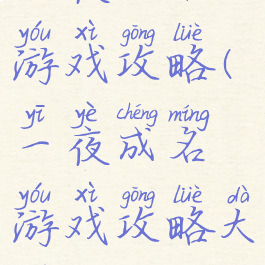 yóu xì gōng lüè
游戏攻略(
yī yè chéng míng
一夜成名
yóu xì gōng lüè dà
游戏攻略大